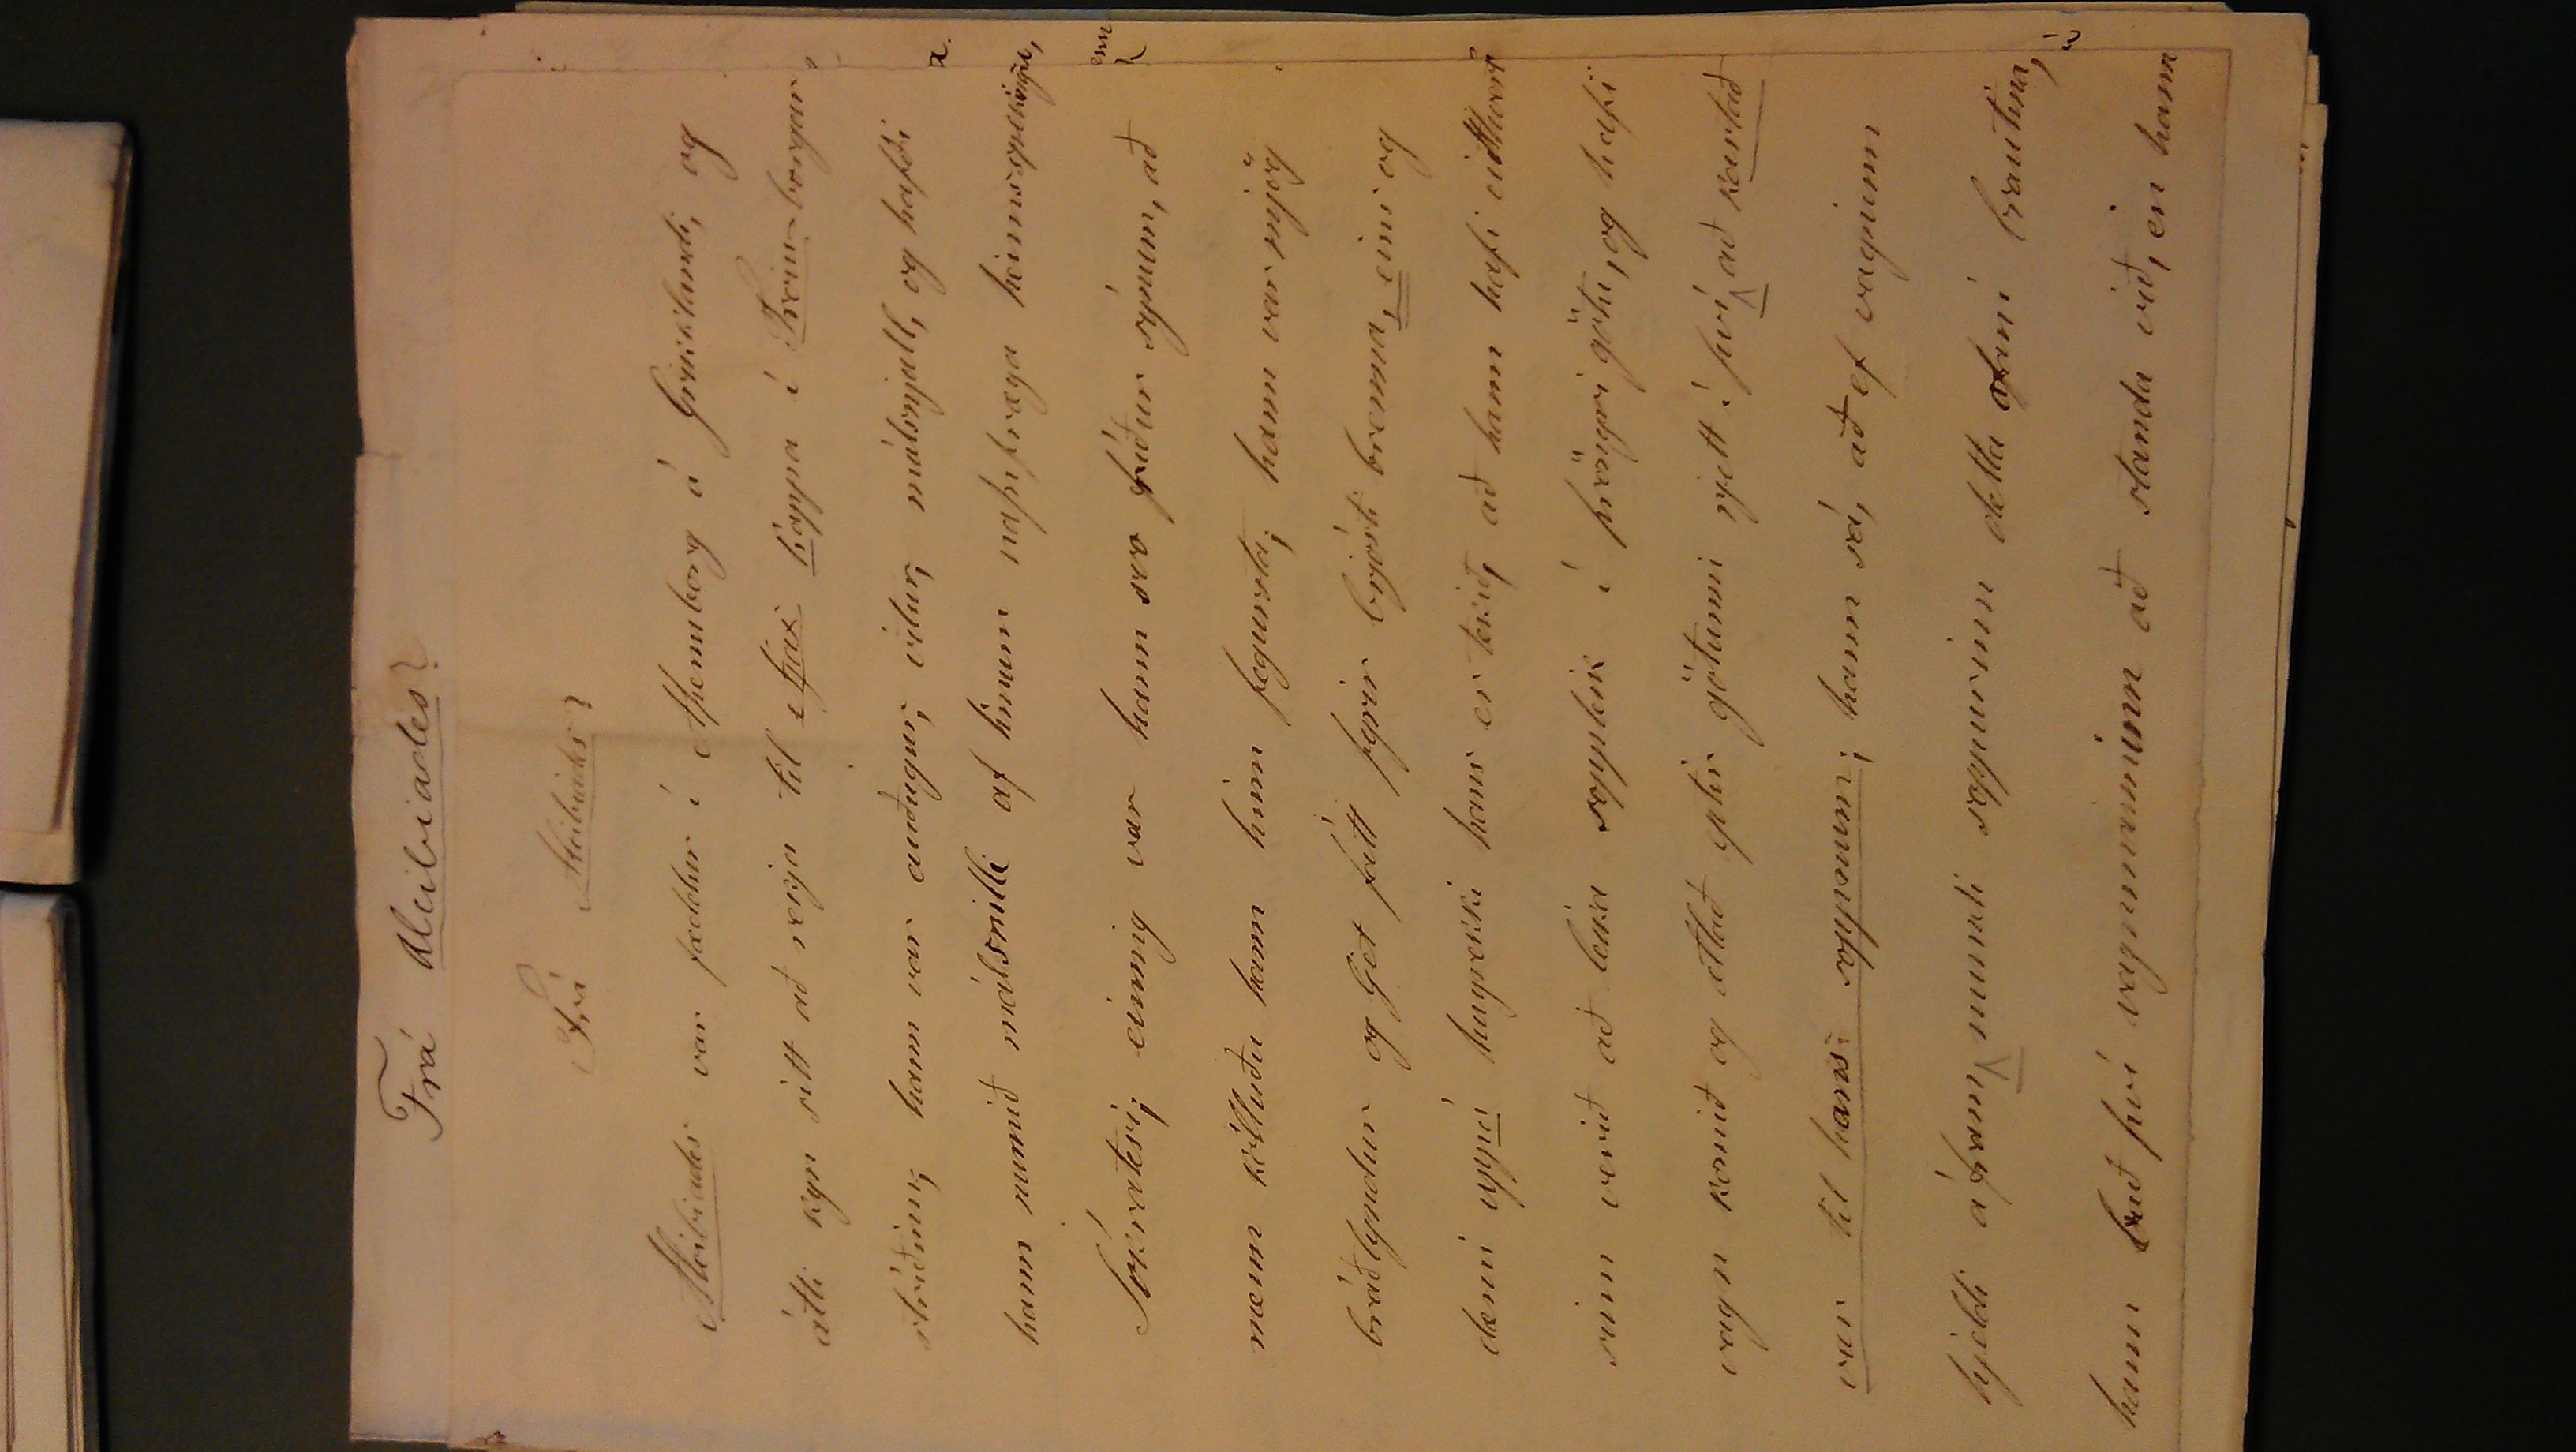 Frá Alcibiades?
Frá Alcibiades?
Alcibiades var fæddur í Athenuborg á Grikklandi, og
átti kyn sitt að rekja til Ajax kappa í Troiu-borgar
stríðinu; hann var auðugur, vitur, málsnjall, og hafði
hann numið málsnilli af hinum nafnfræga heimsspeking,
Sókratesi; einnig var hann svo fríður sýnum, að
menn kölluðu hann hinn fegursta; hann var mjög
bráðlyndur og ljet fátt fyrir brjósti brenna, eini og
dæmi uppá hugrekki hans er tekið, að hann hafi eitthvert
sinn verið að leika soppleik í þröngri götu, og hafi
vagn komið og ætlað eptir götunni rjett í því að kastað
var til hans soppnum; hann sá, að ef vagninn
hjeldi áfram mundi soppurinn detta ofaní brautina,
hann bað því vagnmanninn að standa við, en hann